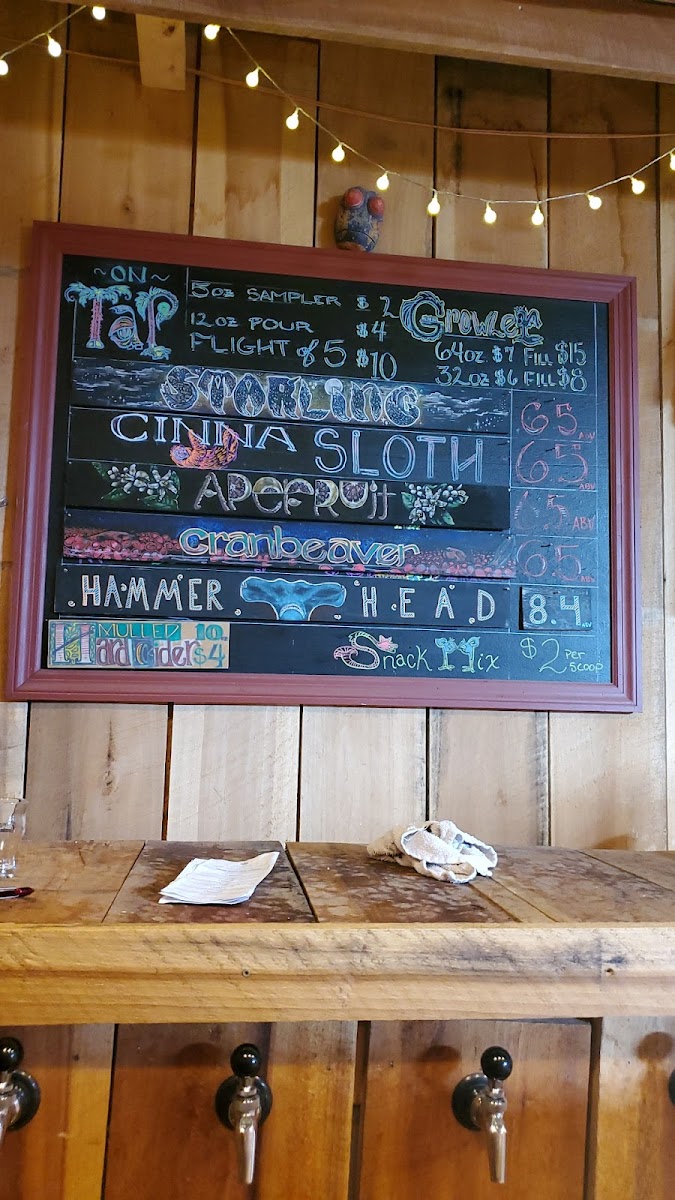 ~ON~
TAP
5oz SAMPLER $2
12oz POUR $4
FLIGHT of 5 $10
Growler
64oz $7 Fill $15
32oz $6 Fill $8
STARLING
CINNA SLOTH
APEFRUit
cranbeaver
HAMMER HEAD
6.5 ABV
6.5 ABV
6.5 ABV
6.5
8.4 ABV
MULLED
Hard Cider $4
Snack Mix $2 PER SCOOP